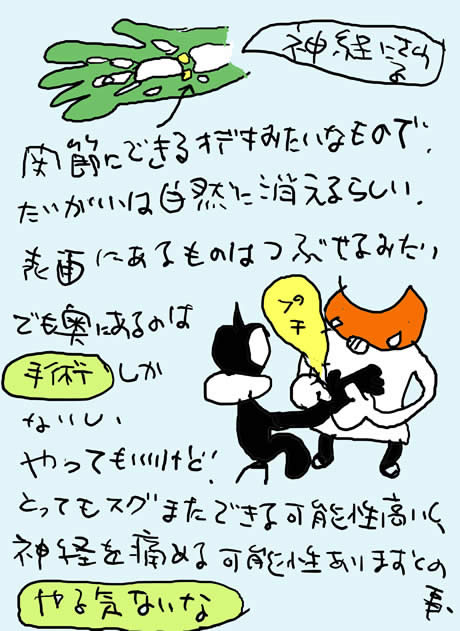 神経にさわる
関節にできるオデキみたいなもので、
たいがいは自然に消えるらしい.
表面にあるものはつぶせるみたい
でも奥にあるのは
プチ
手術しか
ないしい
やってもいいけど!
とってもスグまたできる可能性高いし、
神経を痛める可能性ありますとの
事、
やる気ないな